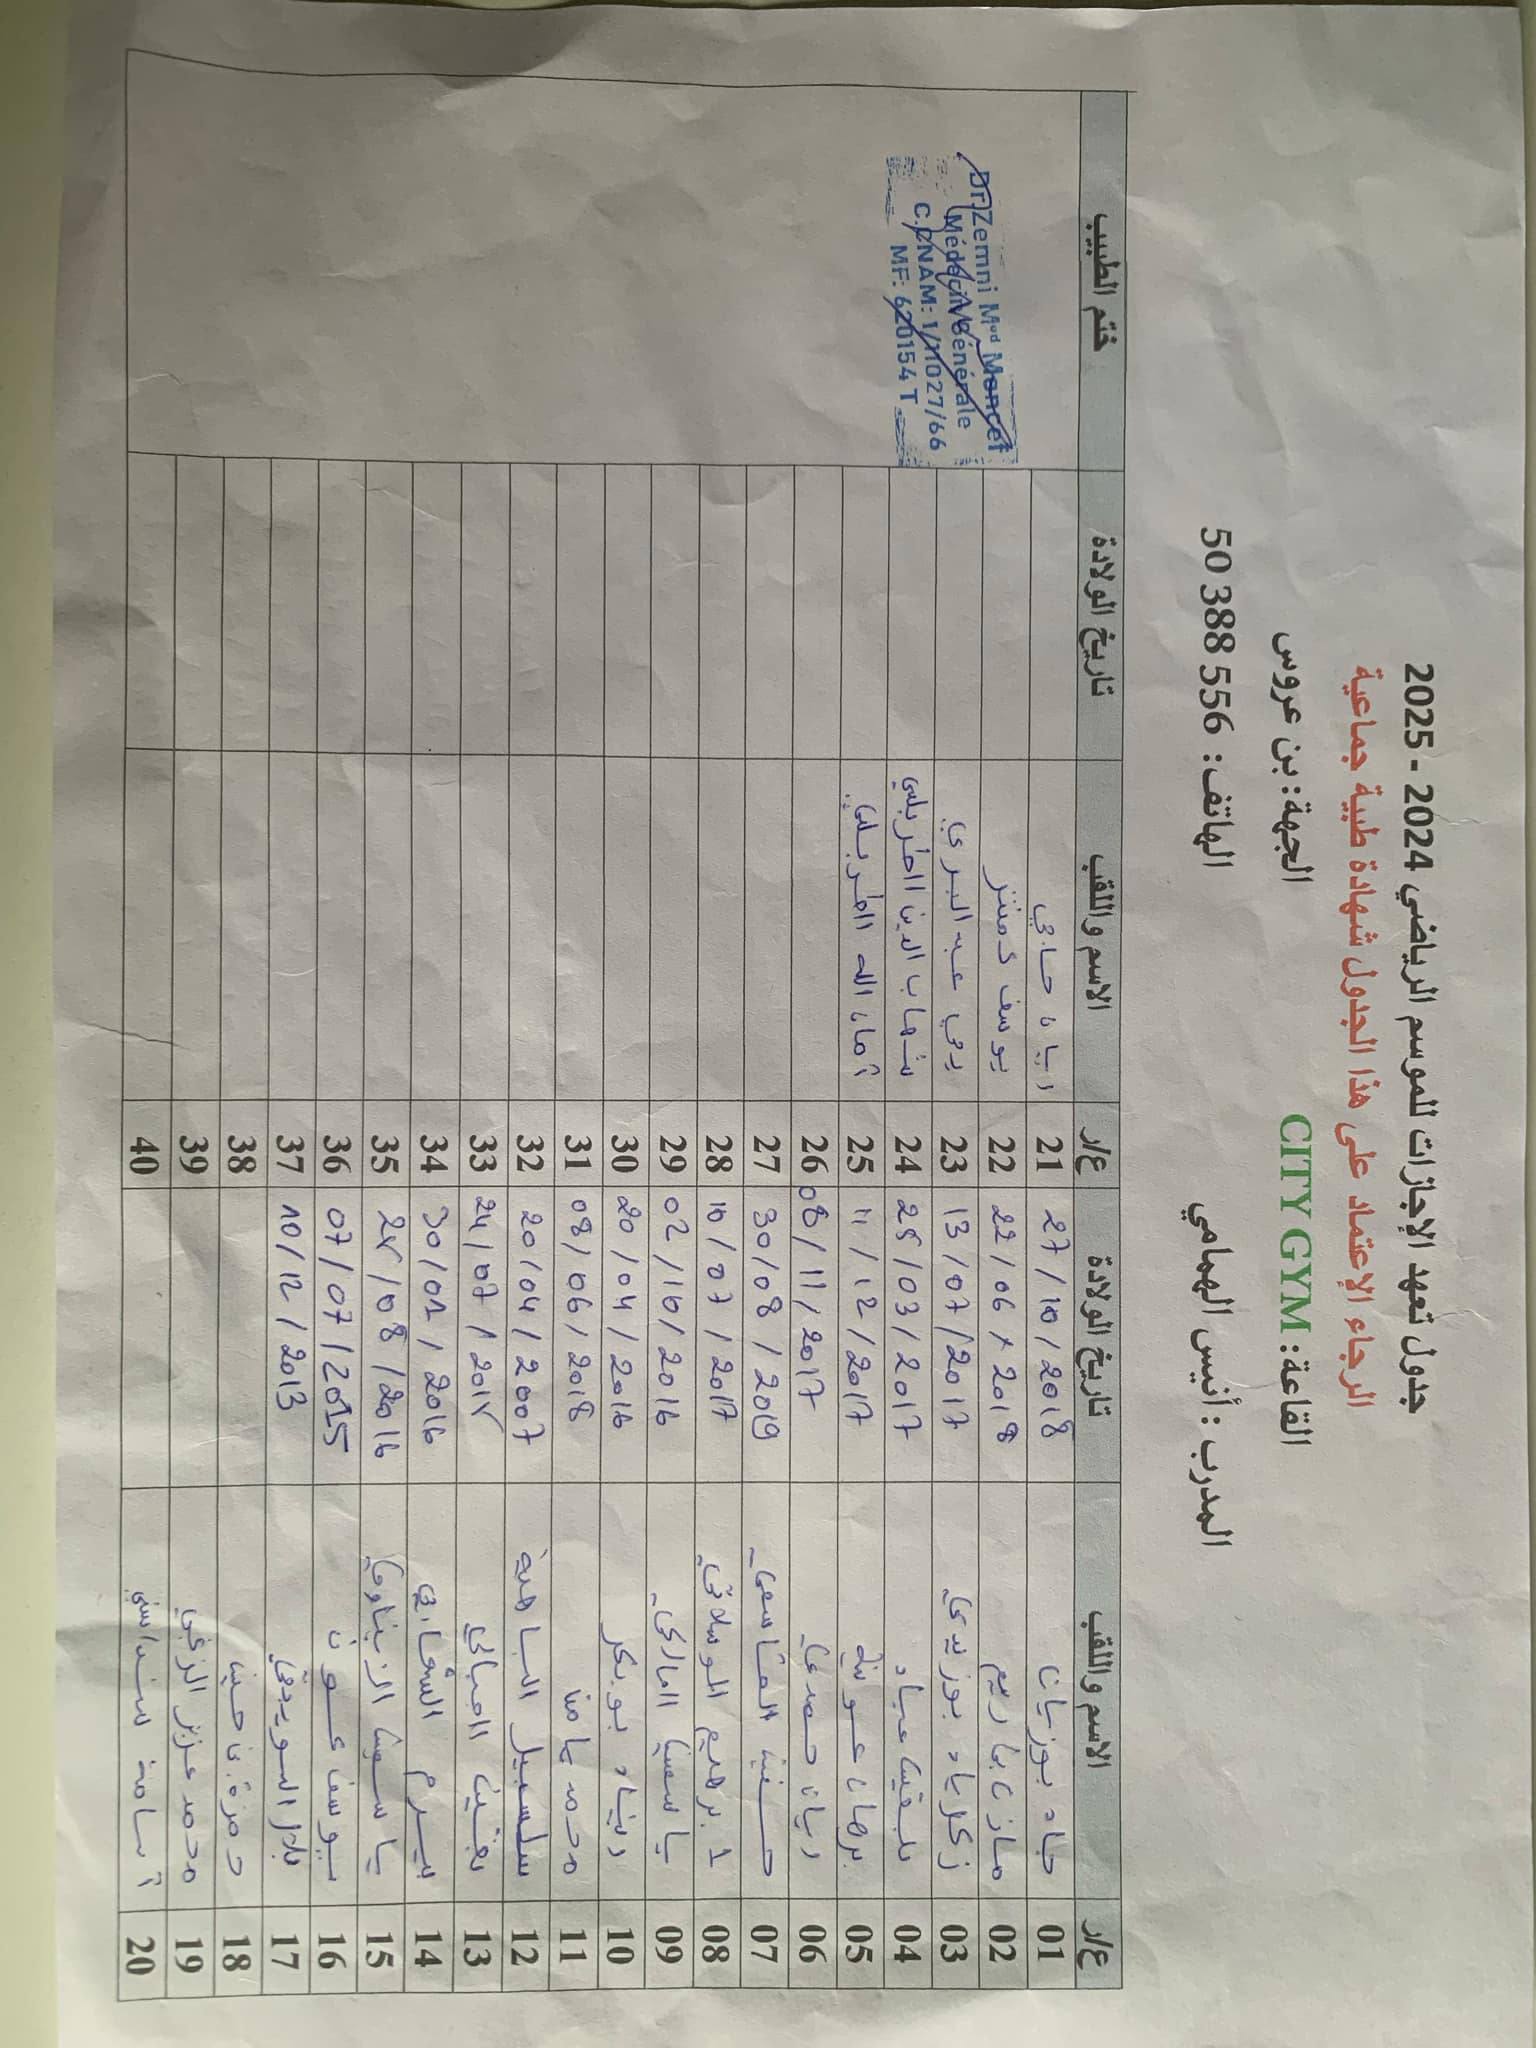 جدول تعهد الإجازات للموسم الرياضي 2024 - 2025
الرجاء الإعتماد على هذا الجدول شهادة طبية جماعية
القاعة: CITY GYM الجهة: بن عروس
المدرب : أنيس الهمامي الهاتف: 50 388 556
ع/ر الاسم واللقب تاريخ الولادة ع/ر الاسم واللقب تاريخ الولادة ختم الطبيب
01 جاد بوزيانا 27/10/2018 21 ريان حاجي
02 مازن بماريم 22/06/2018 22 يوسف
03 زكرياء بوزيدي 13/07/2017 23 يحي عبد البري
04 بلقيس عياد 25/03/2017 24 شهاب الدين الطربلسي
05 برهان عويني 11/12/2017 25 آمان الله الطربلسي
06 ريان حمدي 08/11/2017 26
07 القاسمي 30/08/2019 27
08 ابرهيم الوسلاتي 10/07/2017 28
09 ياسمين الماري 02/10/2016 29
10 ديناد بوبكر 20/04/2016 30
11 محمد يامن 08/06/2018 31
12 سلسبيل الباهية 20/04/2007 32
13 العبالي 24/07/2017 33
14 بيرم 30/01/2016 34
15 ياسمين الزيناوي 25/08/2016 35
16 يوسف عون 07/07/2015 36
17 بلال السويدقي 10/12/2013 37
18 حمزة بن حسين 38
19 محمد عزيز الزغبي 39
20 أسامة سنداسني 40
Dr Zemni Med Moncef
Médecin Générale
C.CNAM: 1/11027/66
MF: 620154 T